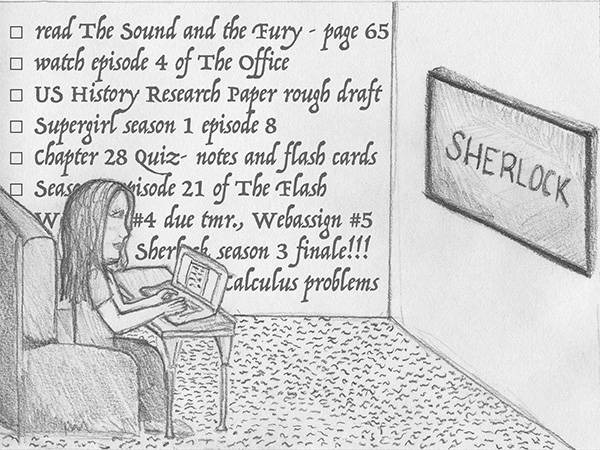 □ read The Sound and the Fury - page 65
□ watch episode 4 of The Office
□ US History Research Paper rough draft
□ Supergirl season 1 episode 8
□ Chapter 28 Quiz- notes and flash cards
□ Seas episode 21 of The Flash
W #4 due tmr., Webassign #5
Sherlock season 3 finale!!!
Calculus problems
SHERLOCK